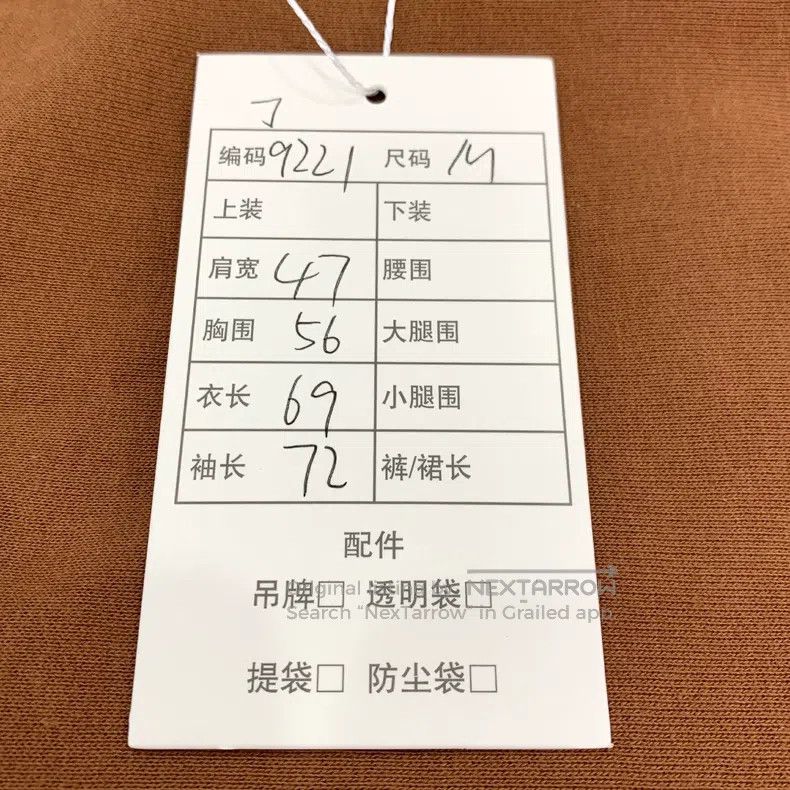 编码9221 尺码 M
上装 下装
肩宽 47 腰围
胸围 56 大腿围
衣长 69 小腿围
袖长 72 裤/裙长
配件
吊牌□ 透明袋□
NEXTARROW
Search "NexTarrow" in Grailed app
提袋□ 防尘袋□